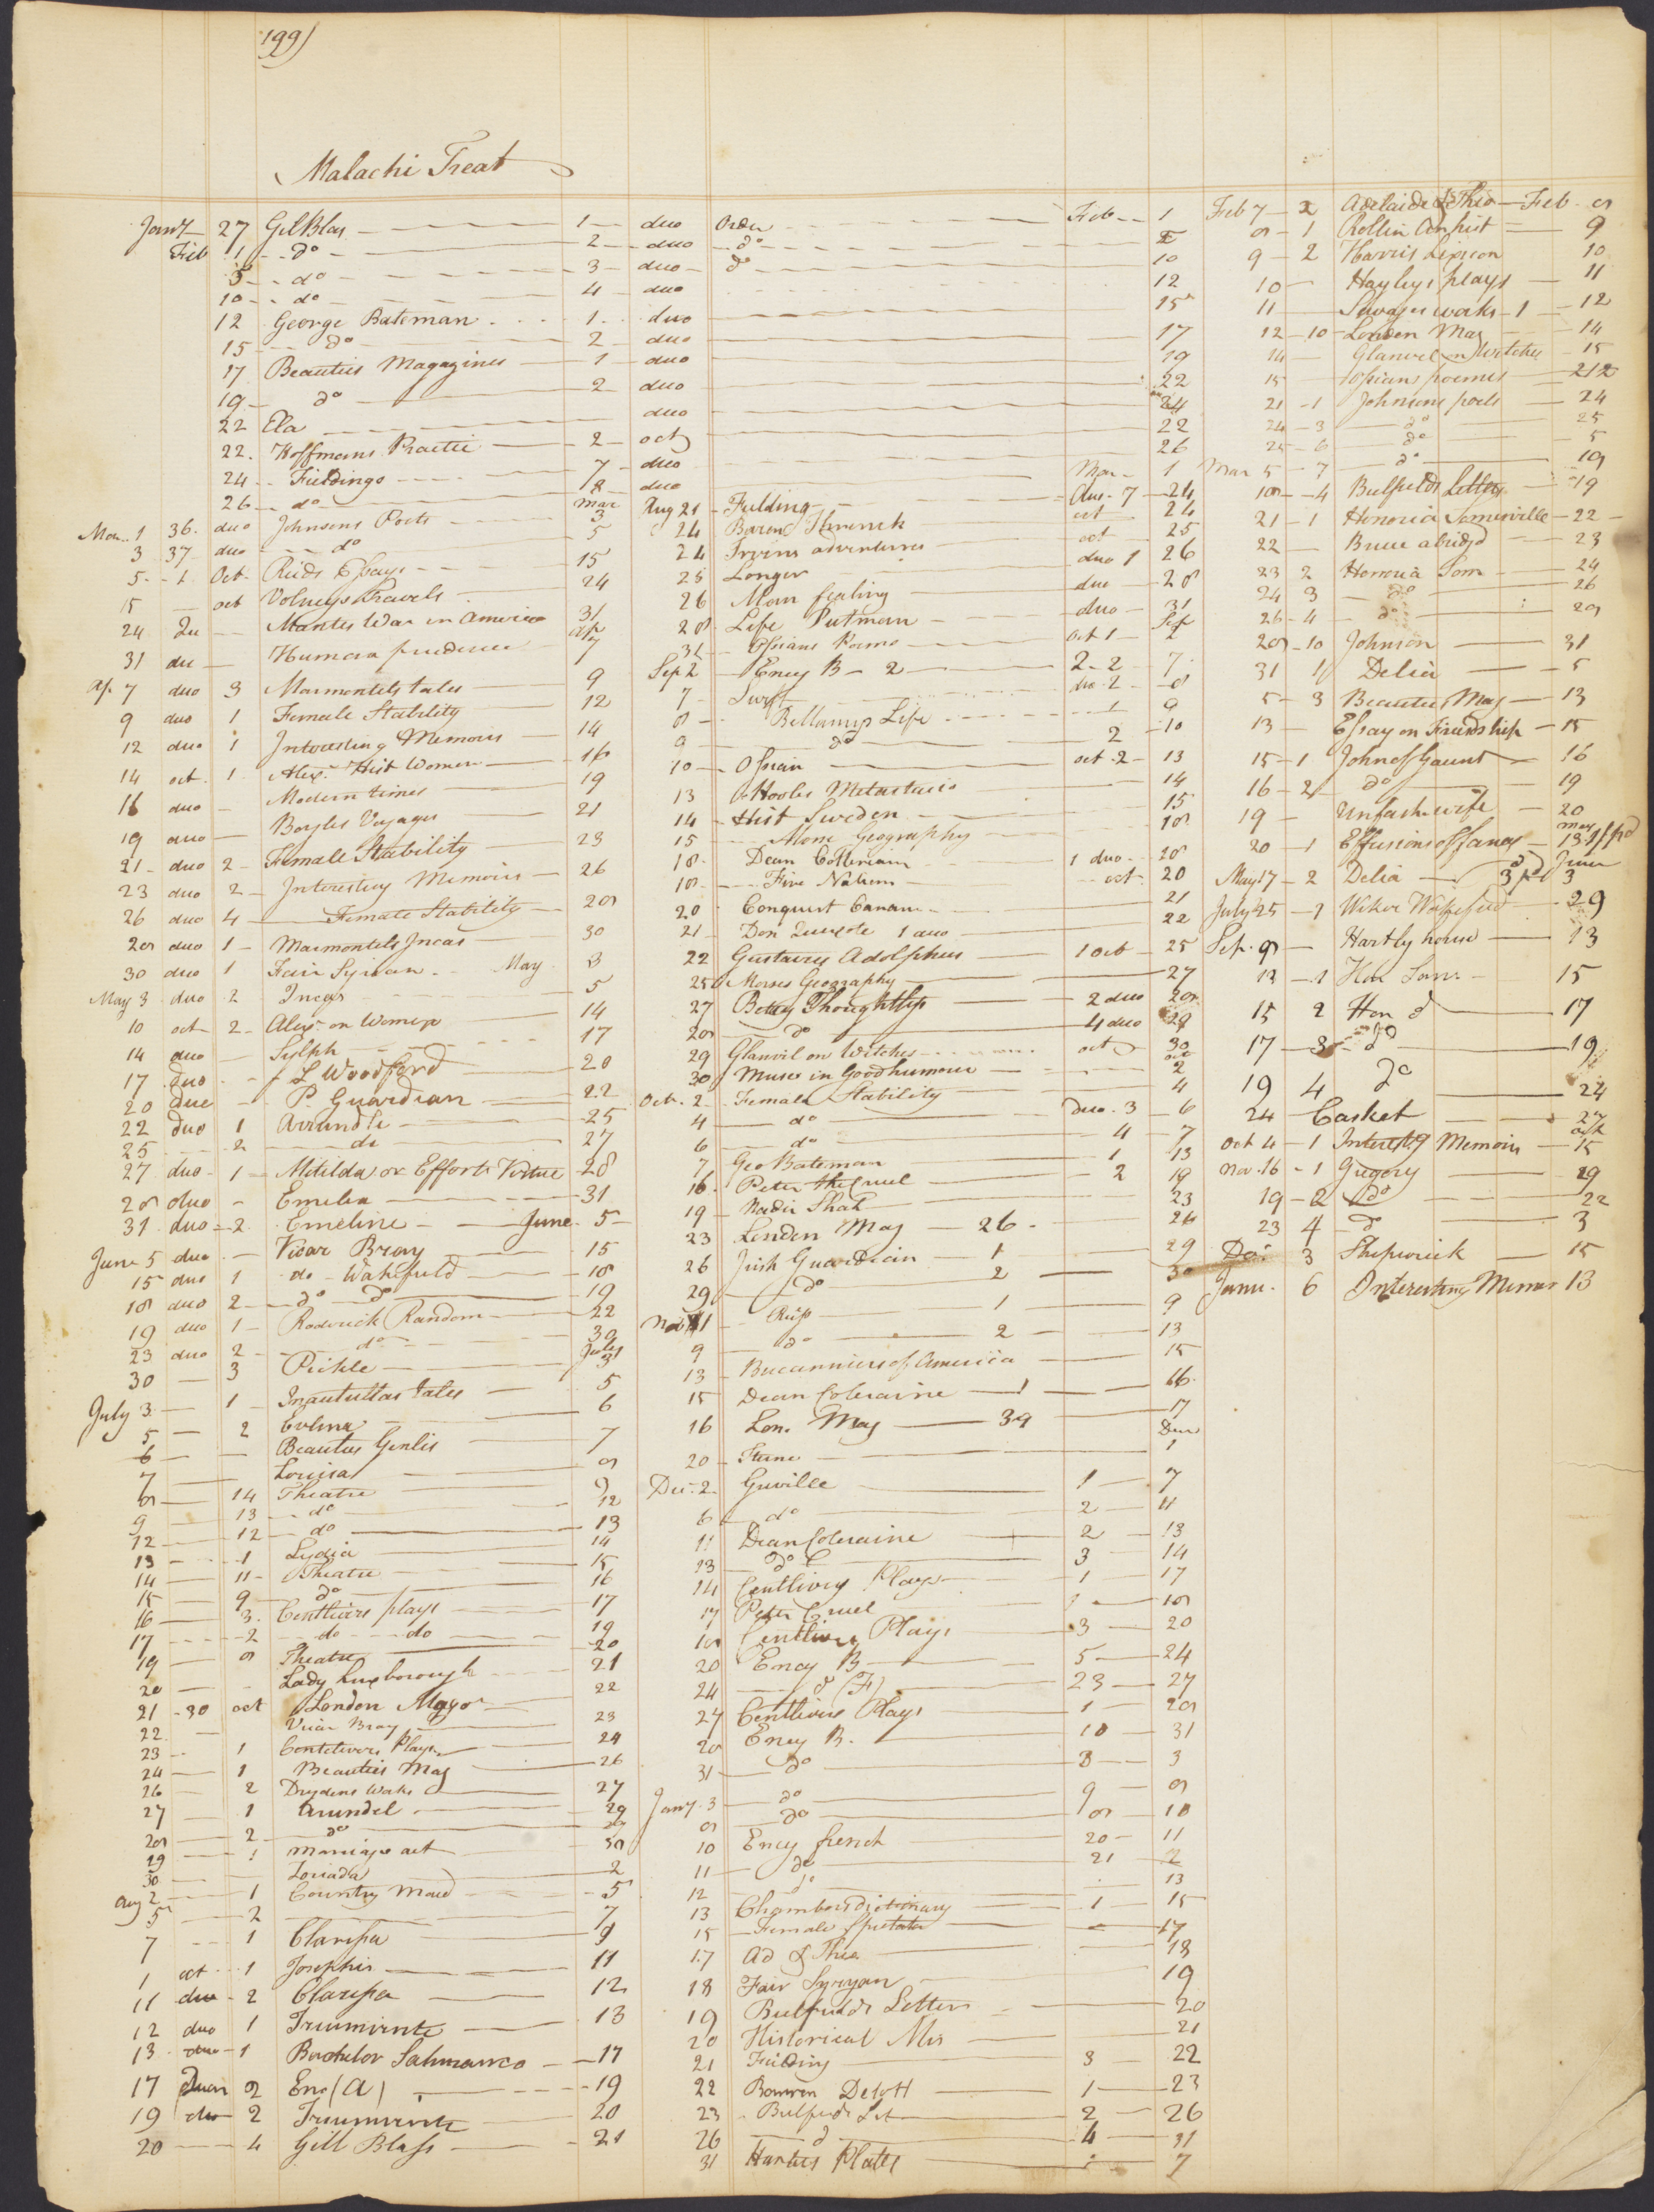 199)
Malachi Treat
Jany 27 Gil Blas 1 duo Order Feb 1
Feb 1 do 2 duo do 5
5 do 3 duo do 10
10 do 4 duo 12
12 George Bateman 1 duo 15
15 do 2 duo 17
17 Beauties Magazines 1 duo 19
19 do 2 duo 22
22 Ela duo 24
22 Hoffmans Practice 2 oct 22
24 Fieldings 7 duo 26
26 do 8 duo Mar 1
Mar 1 36 duo Johnsons Poets Mar 3
3 37 duo do 5
5 1 Oct Rieds Essays 15
15 oct Volneys Travels 24
24 du Mantes War in America 31
31 du Human prudence ap 7
Ap 7 duo 3 Marmontels tales 9
9 duo 1 Female Stability 12
12 duo 1 Interesting Memoirs 14
14 oct 1 Alexr Hist Women 16
16 duo Modern times 19
19 duo Boyles Voyages 21
21 duo 2 Female Stability 23
23 duo 2 Interesting Memoirs 26
26 duo 4 Female Stability 28
28 duo 1 Marmontels Incas 30
30 duo 1 Fair Syrian May 3
May 3 duo 2 Incas 5
10 oct 2 Alexr on Women 14
14 duo Sylph 17
17 duo L Woodford 20
20 duo P. Guardian 22
22 duo 1 Arrundle 25
25 2 do 27
27 duo 1 Matilda or Efforts Virtue 28
28 duo Emelia 31
31 duo 2 Emeline June 5
June 5 duo Vicar Bray 15
15 duo 1 do Wakefield 18
18 duo 2 do do 19
19 duo 1 Roderick Random 22
23 duo 2 do 30
30 3 Pickle July 3
July 3 1 Tales 5
5 2 Evlina 6
6 Beauties Genlis 7
7 Louisa 8
8 14 Theatre 9
9 13 do 12
12 12 do 13
13 1 Lydia 14
14 11 Theatre 15
15 9 do 16
16 3 Centlivers plays 17
17 2 do do 19
19 8 Theatre 20
20 Lady Luxborough 21
21 30 oct London Magr 22
22 Vicar Bray 23
23 1 Centlivers Plays 24
24 1 Beauties Mag 26
26 2 Drydens Works 27
27 1 Arundel 29
28 2 do
29 1 Marriage act 30
30 2
Aug 2 1 Country Maid 5
5 2 7
7 1 Clarissa 9
1 oct 1 Josephus 11
11 duo 2 Clarissa 12
12 duo 1 Triumvirate 13
13 duo 1 Bachelor Salmanca 17
17 2 Enc (A) 19
19 duo 2 Triumvirate 20
20 4 Gill Blass 21
Aug 21 Fielding duo 7 24
24 Baron Threnck oct 24
24 Irvins adventures oct 25
25 Longer duo 1 26
26 Man feeling duo 28
28 Life Putman duo 31
31 Ossians Poems oct 1 Sep 2
Sep 2 Ency B 2 2 2 7
7 Swift duo 2 8
8 Bellamys Life 1 9
9 do 2 10
10 Ossian oct 2 13
13 Hooles Metastasio 14
14 Hist Sweden 15
15 Mors Geography 18
18 Dean Colleriam 1 duo 20
18 Five Nations oct 20
20 Conquest Canaan 21
21 Don Quixote 1 duo 22
22 Gustavus Adolphus 1 oct 25
25 Morses Geography 27
27 Betsy Thoughtless 2 duo 28
28 do 4 duo 29
29 Glanvil on Witches oct 30
30 Muse in Good humour oct 2
Oct. 2 Female Stability 4
4 do duo 3 6
6 do 4 7
7 Geo Bateman 1 13
16 Peter the Cruel 2 19
19 Nadir Shah 23
23 London Mag 26 26
26 Irish Guardian 1 29
29 do 2 30
Nov 1 Rup 1 9
9 do 2 13
13 Bucanniers of America 15
15 Dean Coleraine 1 16
16 Lon. Mag 39 17
20 Sterne Decr 1
Dec. 2 Greville 1 7
6 do 2 11
11 Dean Coleraine 2 13
13 do C 3 14
14 Centlivers Plays 1 17
17 Peter Cruel 1 18
18 Centlivers Plays 3 20
20 Ency B 5 24
24 d (F) 23 27
27 Centlivers Plays 1 28
28 Ency B. 10 31
31 do 3 3
Jany 3 do 9 8
8 do 8 10
10 Ency french 20 11
11 do 21 2
12 do 13
13 Chambers dictionary 1 15
15 Female Spectator 17
17 Ad & Theo 18
18 Fair Syryan 19
19 Bulfields Letters 20
20 Historical Mis 21
21 Fielding 3 22
22 Bowren Detott 1 23
23 Bulfields Let 2 26
26 d 4 31
31 Harters Plates 7
Feb 7 2 Adelaide & Theo Feb 8
8 1 Rollin An hist 9
9 2 Harris Lexicon 10
10 Hayleys plays 11
11 Savages works 1 12
12 10 London Mag 14
14 Glanvel on Witches 15
15 Ossians poems 212
21 1 Johnsons poets 24
24 3 do 25
25 6 do 5
Mar 5 7 do 18
18 4 Bulfields Letters 19
21 1 Honoria Somerville 22
22 Bruce abridgd 23
23 2 Honoria Som 24
24 3 do 26
26 4 do 28
28 10 Johnson 31
31 1 Delia 5
5 3 Beauties Mag 13
13 Essay on Friendship 15
15 1 John of Gaunt 16
16 2 do 19
19 Unfash. wife 20
20 1 Effusions of fancy May 13
May 17 2 Delia June 3
July 25 1 Wiker Wakefield 29
Sep. 8 Hartly house 13
13 1 Hon Som 15
15 2 Hon d 17
17 3 do 19
19 4 do 24
24 Casket 27
Oct 4 1 Interestg Memoirs Oct 15
Nov. 16 1 Gregory 19
19 2 do 22
23 4 d 3
Dec 3 Shipwrick 15
Janu. 6 Interesting Memor 13